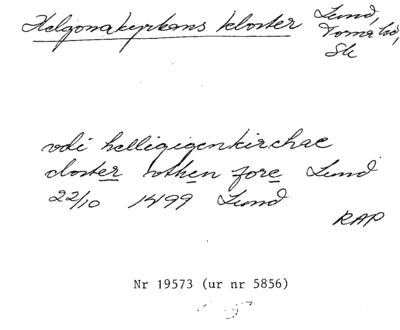 Helgonakyrkans kloster Lund,
Torna hd,
Sk
vdi helligigenkirchae
closter vthen fore Lund
22/10 1499 Lund
RAP
Nr 19573 (ur nr 5856)